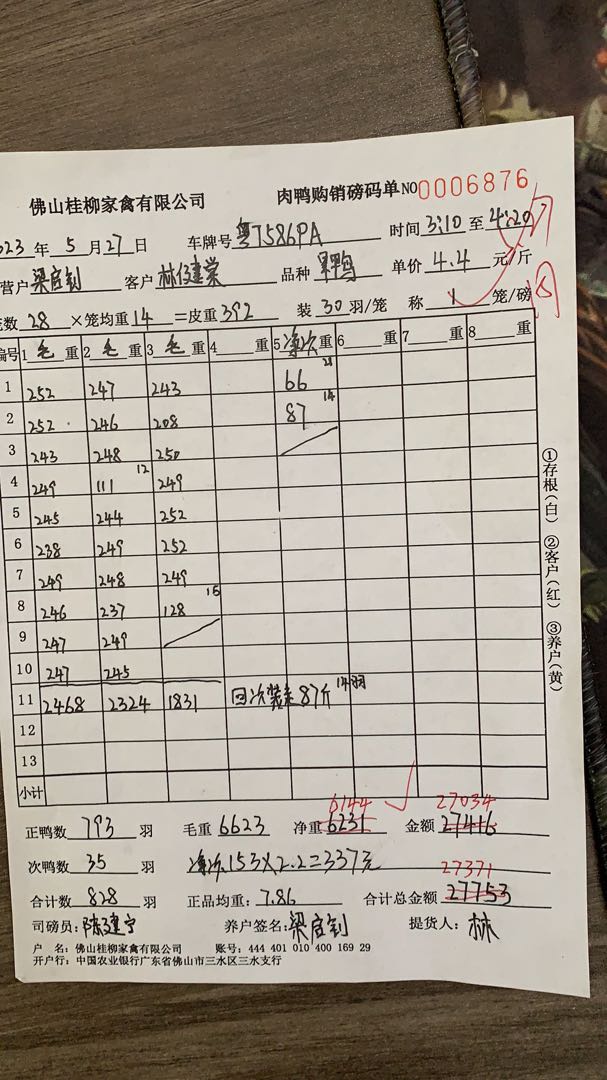 佛山桂柳家禽有限公司 肉鸭购销磅码单 NO 0006876
023 年 5 月 27 日 车牌号 粤T586PA 时间 3:10 至 4:20
营户 客户 品种 单价 4.4 元/斤
笼数 28 ×笼均重 14 =皮重 392 装 30 羽/笼 称 1 笼/磅
编号 1 毛 重 2 毛 重 3 毛 重 4 重 5 净次 重 6 重 7 重 8 重
1 252 247 243 66 21
2 252 246 208 87 14
3 243 248 250
4 249 111 12 249
5 245 244 252
6 238 249 252
7 249 248 249
8 246 237 128 15
9 247 249
10 247 245
11 2468 2324 1831 回次装走87斤 14羽
12
13
小计
①存根(白) ②客户(红) ③养户(黄)
6144 27034
正鸭数 793 羽 毛重 6623 净重 6231 金额 27416
次鸭数 35 羽 净次153×2.2=337元 27371
合计数 828 羽 正品均重: 7.86 合计总金额 27753
司磅员: 养户签名: 提货人: 林
户 名: 佛山桂柳家禽有限公司 账号: 444 401 010 400 169 29
开户行: 中国农业银行广东省佛山市三水区三水支行